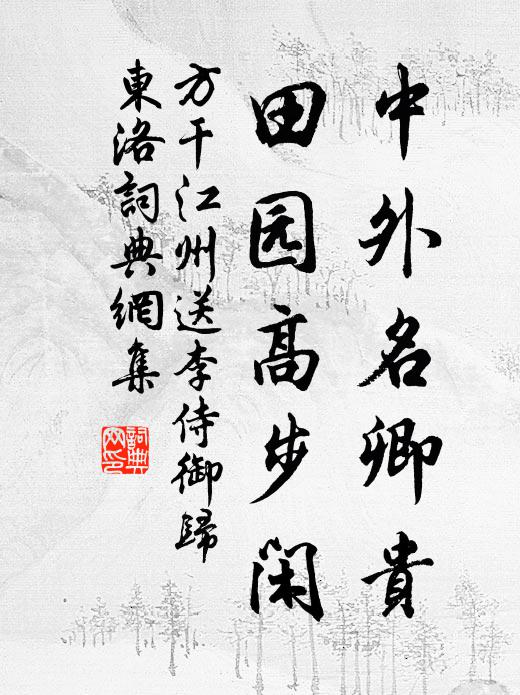 中外名卿貴
田园高步闲
方干江州送李侍御歸
東洛詞典網集
詞典
网印